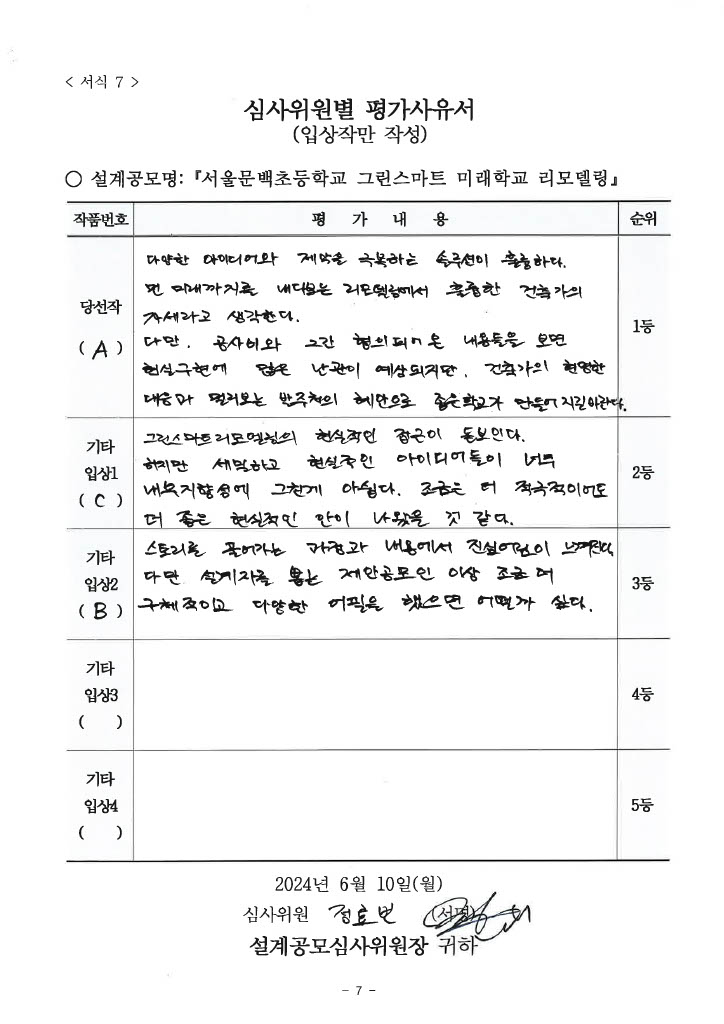 < 서식 7 >
심사위원별 평가사유서
(입상작만 작성)
○ 설계공모명: 『서울문백초등학교 그린스마트 미래학교 리모델링』
작품번호 평 가 내 용 순위
당선작
( A )
다양한 아이디어와 제약을 극복하는 솔루션이 훌륭하다.
먼 미래까지를 내다보는 리모델링에서 훌륭한 건축가의
자세라고 생각한다.
다만, 공사비와 그간 협의되어 온 내용들을 보면
현실구현에 많은 난관이 예상되지만, 건축가의 현명한
대응과 멀리보는 발주처의 혜안으로 좋은학교가 만들어지길바란다.
1등
기타
입상1
( C )
그린스마트리모델링의 현실적인 접근이 돋보인다.
하지만 세밀하고 현실적인 아이디어들이 너무
내부지향성에 그친게 아쉽다. 조금은 더 적극적이어도
더 좋은 현실적인 안이 나왔을 것 같다.
2등
기타
입상2
( B )
스토리를 끌어가는 과정과 내용에서 진실어림이 느껴진다.
다만 설계자를 뽑는 제안공모인 이상 조금 더
구체적이고 다양한 어필을 했으면 어떨까 싶다.
3등
기타
입상3
( )
4등
기타
입상4
( )
5등
2024년 6월 10일(월)
심사위원 정효빈 (서명)
설계공모심사위원장 귀하
- 7 -